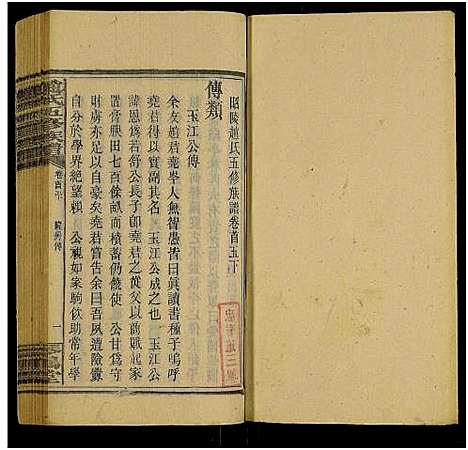 昭陵趙氏五修族譜卷首五下
傳類
玉江公傳
余友趙君堯峯人無智愚皆曰眞讀書種子嗚呼
堯君得以實副其名者玉江公成之也　玉江公
諱恩榮裕公長子卽堯君之父以前戰起家
置膏腴田七百餘畝而積蓄仍饒使　公甘爲守
財虜亦足以自豪矣堯君嘗告余曰吾夙遭險釁
自分於學界絕望賴　公視如家駒佽助常年學
趙氏五修族譜
卷首下
一